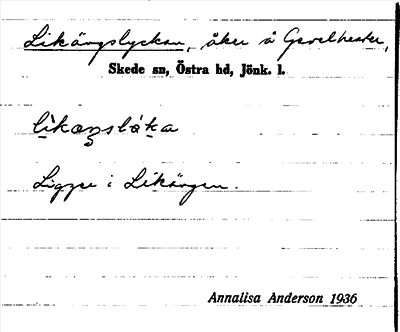 Likängslyckan, åker å Gavelhester,
Skede sn, Östra hd, Jönk. l.
Ligger i Likängen.
Annalisa Anderson 1936